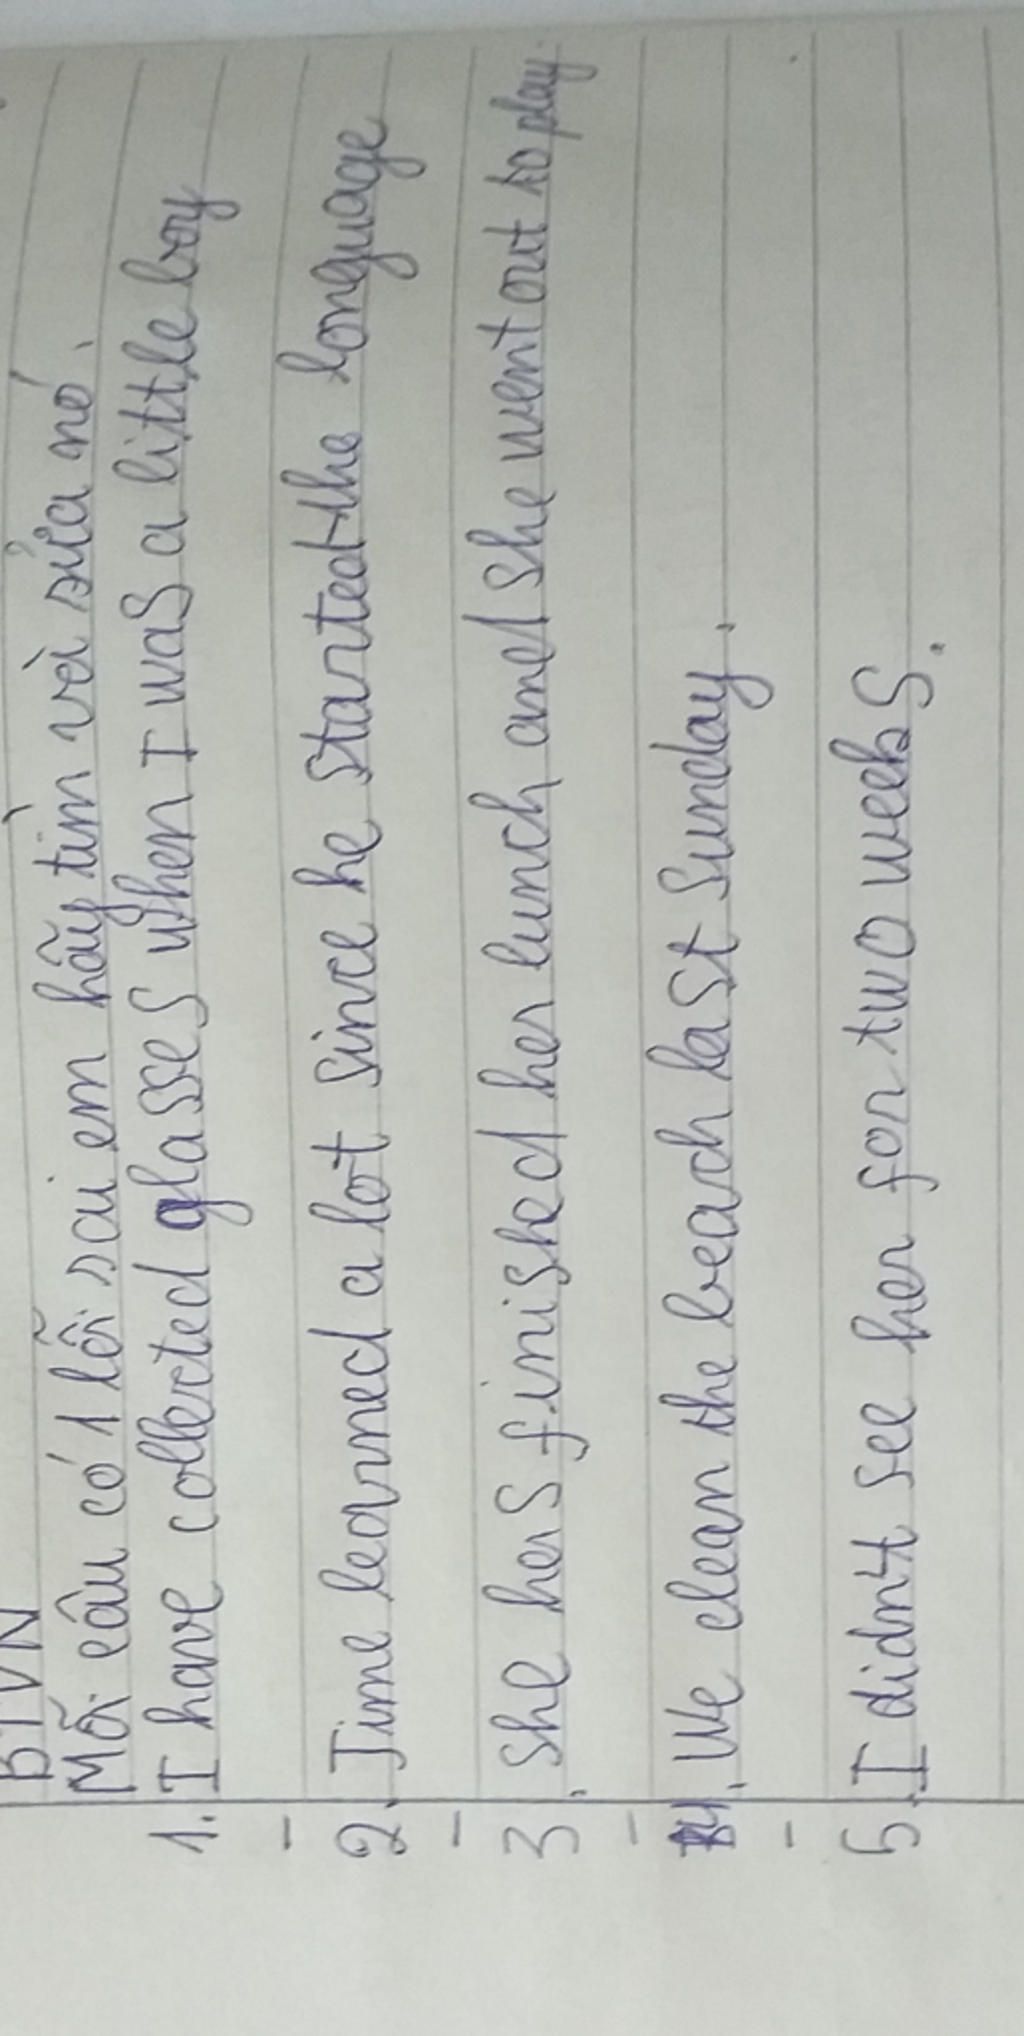 BTVN
Mỗi câu có 1 lỗi sai em hãy tìm và sửa nó.
1. I have collected glasses when I was a little boy
-
2. Jime learned a lot since he started the language
-
3. She has finished her lunch and she went out to play.
-
4. We clean the beach last Sunday.
-
5. I didn't see her for two weeks.